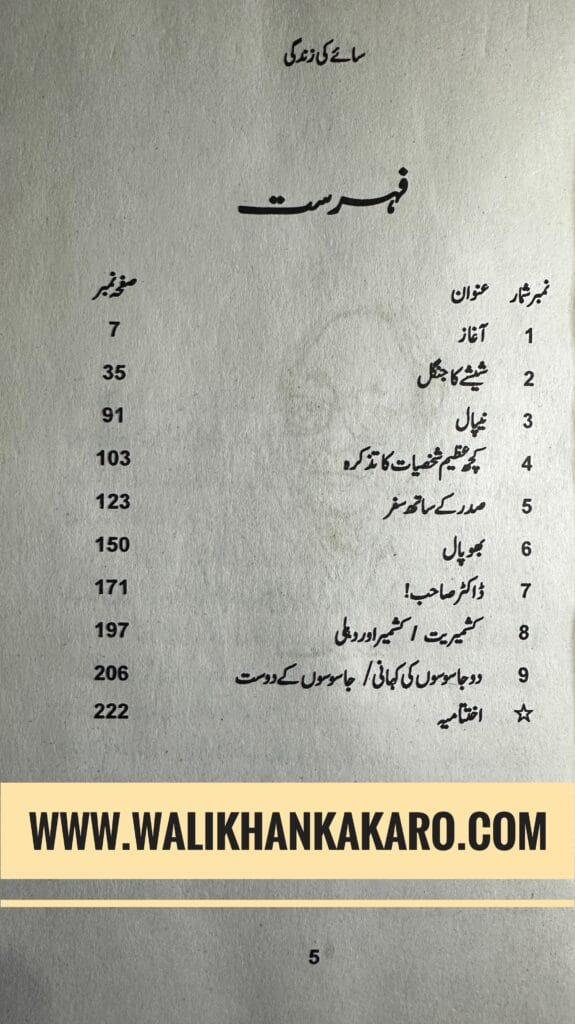 سائے کی زندگی
فہرست
نمبر شمار عنوان صفحہ نمبر
1 آغاز 7
2 شیشے کا جنگل 35
3 نیپال 91
4 کچھ عظیم شخصیات کا تذکرہ 103
5 صدر کے ساتھ سفر 123
6 بھوپال 150
7 ڈاکٹر صاحب! 171
8 کشمیریت / کشمیر اور دہلی 197
9 دو جاسوسوں کی کہانی / جاسوسوں کے دوست 206
☆ اختتامیہ 222
WWW.WALIKHANKAKARO.COM
5